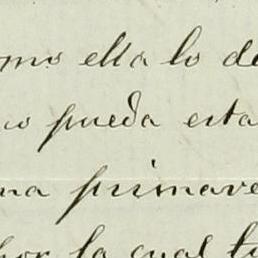 mo ella lo de
no pueda esta
na primave
hor la cual tu